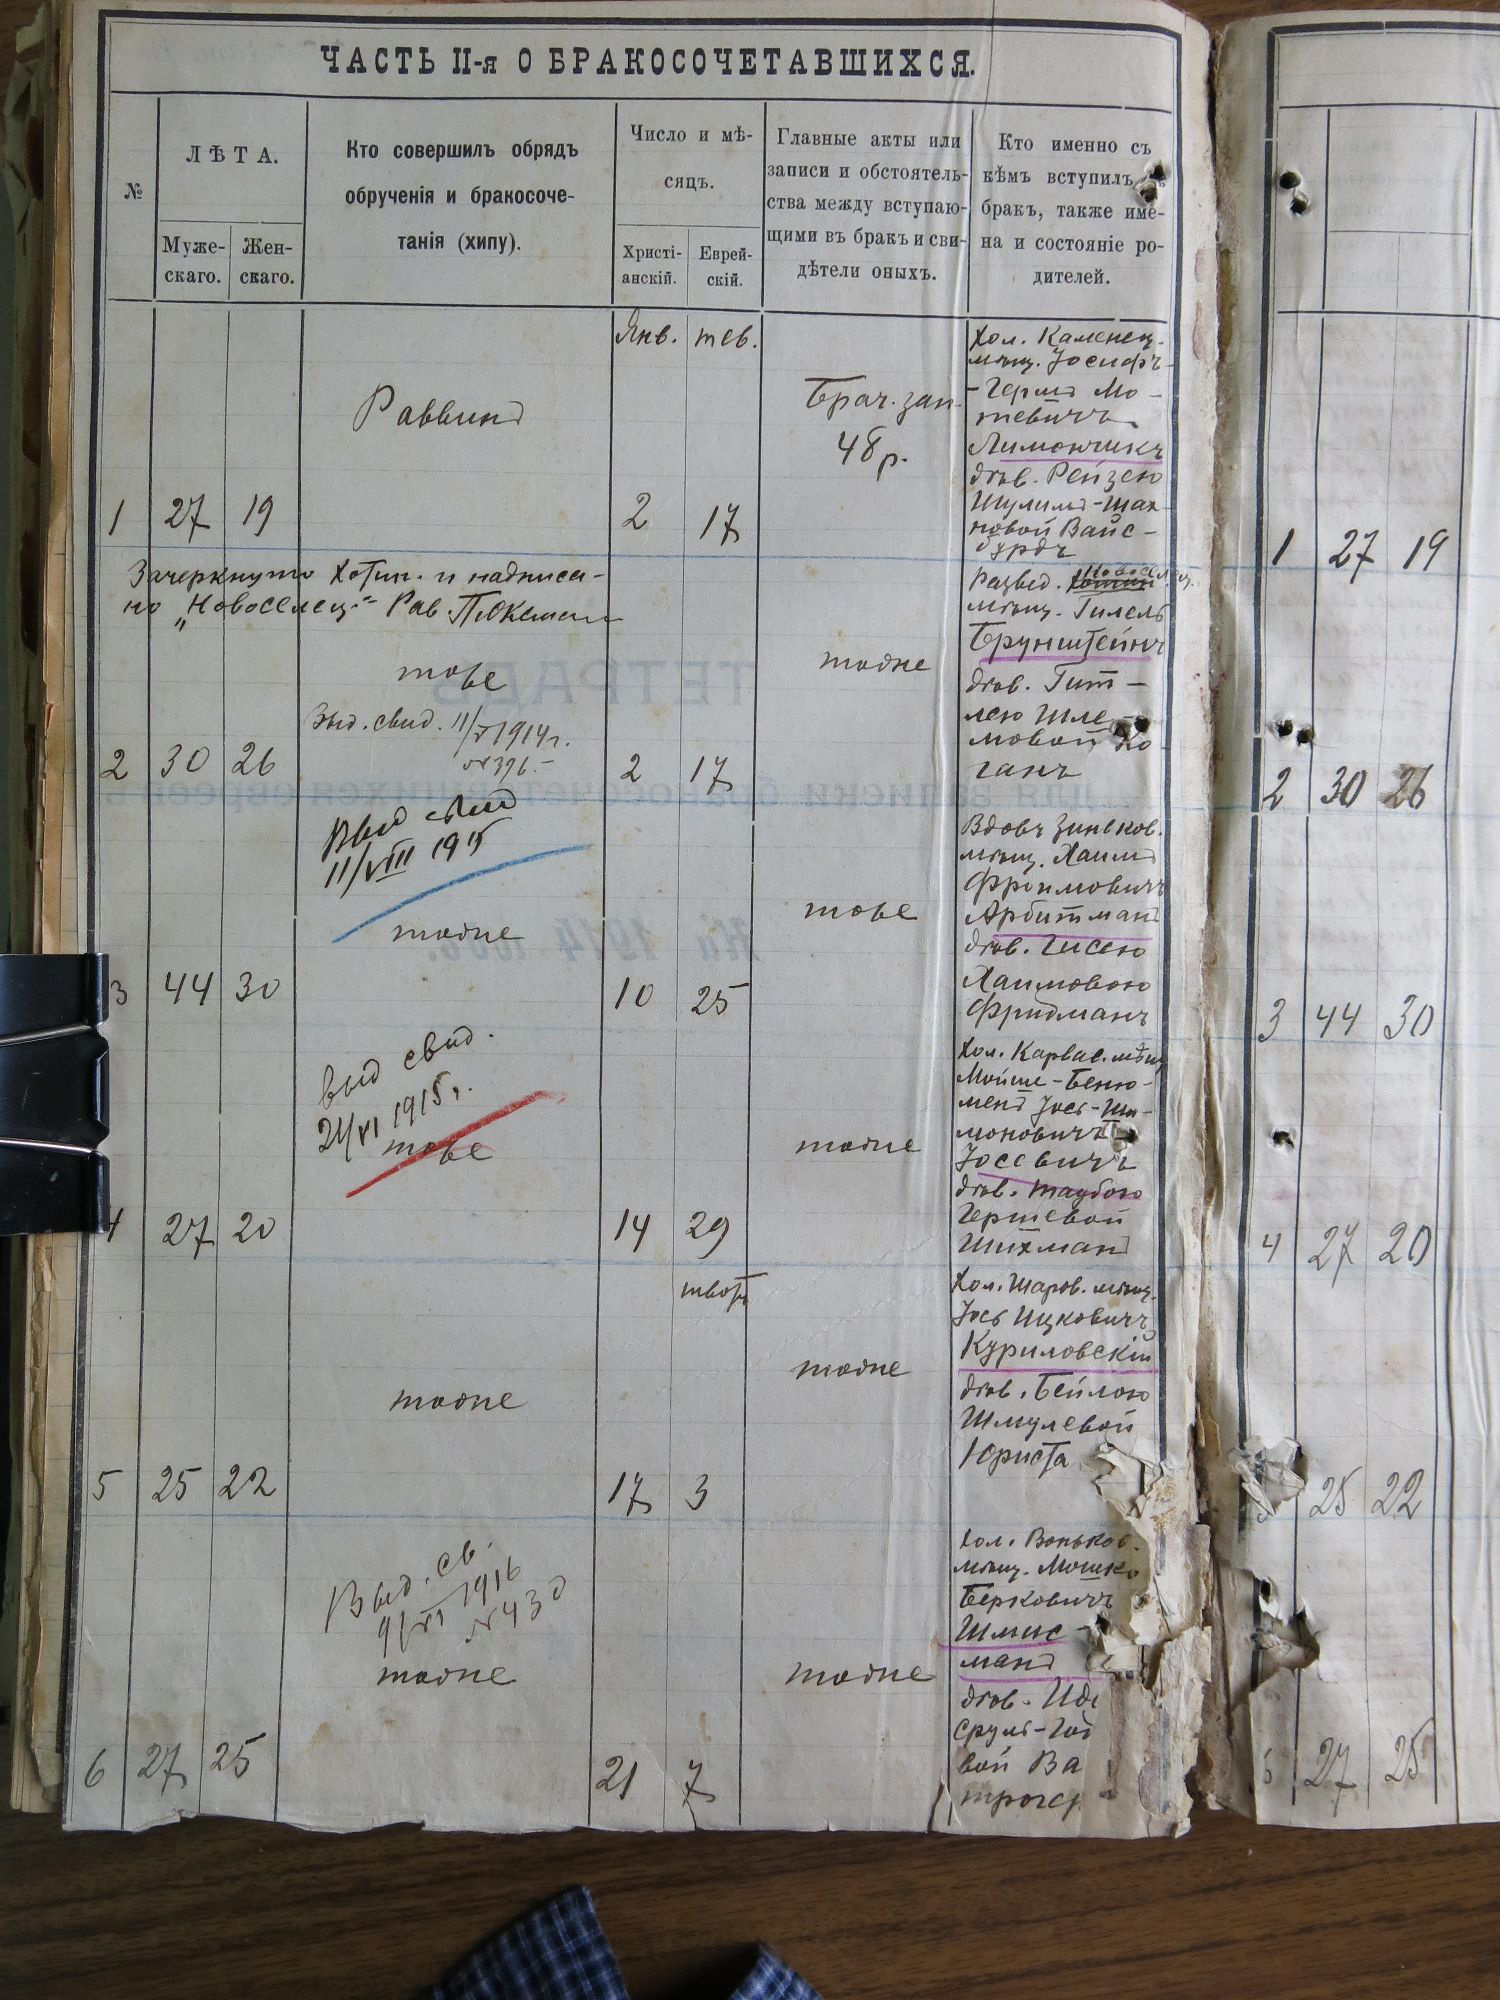 ЧАСТЬ II-я О БРАКОСОЧЕТАВШИХСЯ.
№
ЛѢТА.
Муже-
скаго.
Жен-
скаго.
Кто совершилъ обрядъ
обрученія и бракосоче-
танія (хипу).
Число и мѣ-
сяцъ.
Христі-
анскій.
Еврей-
скій.
Главные акты или
записи и обстоятель-
ства между вступаю-
щими въ бракъ и сви-
дѣтели оныхъ.
Кто именно съ
кѣмъ вступилъ
бракъ, также име-
на и состояніе ро-
дителей.
Янв. тев.
1 27 19
Раввинъ
2 17
Брач. зап.
48 р.
Хол. Каменец.
мѣщ. Іосифъ-
-Гершъ Мо-
тевичъ
Лимончикъ
дѣв. Рейзею
Шулимъ-Шах-
новой Вайс-
бурдъ
Зачеркнуто Хотин. и надписа-
но „Новоселец." Рав.
2 30 26
тоже
Выд. свид. 11/V 1914 г.
№ 396.-
2 17
тоже
Развед. Хотин Новоселиц.
мѣщ. Гилель
Брунштейнъ
дѣв. Гит-
лею Шле-
мовой Ко-
ганъ
3 44 30
Выд свид
11/VIII 1915
тоже
10 25
тоже
Вдовъ Зиньков.
мѣщ. Хаимъ
Фроимовичъ
Арбитманъ
дѣв. Гисею
Хаимовою
Фридманъ
4 27 20
Выд свид.
21/VI 1915 г.
тоже
14 29
тоже
Хол. Карвас. мѣщ
Мойше-Беню-
менъ Іось-Ши-
моновичъ
Іосевичъ
дѣв. Таубою
Гершевой
Шихманъ
шватъ
5 25 22
тоже
17 3
тоже
Хол. Шаров. мѣщ.
Іось Ицковичъ
Куриловскій
дѣв. Бейлою
Шмулевой
Юриста
6 27 25
Выд. св.
9/VI 1916
№ 430
тоже
21 7
тоже
Хол. Воньков.
мѣщ. Мошко
Берковичъ
Шмис-
манъ
дѣв.
сруль-
вой
1 27 19
2 30 26
3 44 30
4 27 20
25 22
27 25